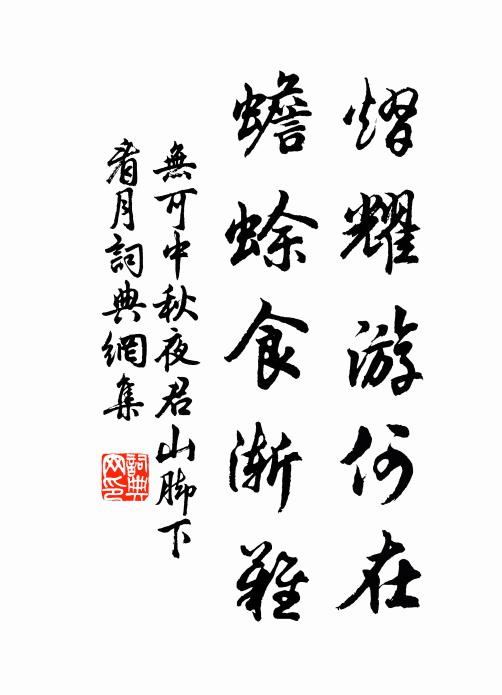 熠耀游何在
蟾蜍食渐難
無可中秋夜君山脚下
看月詞典網集
詞典
网印